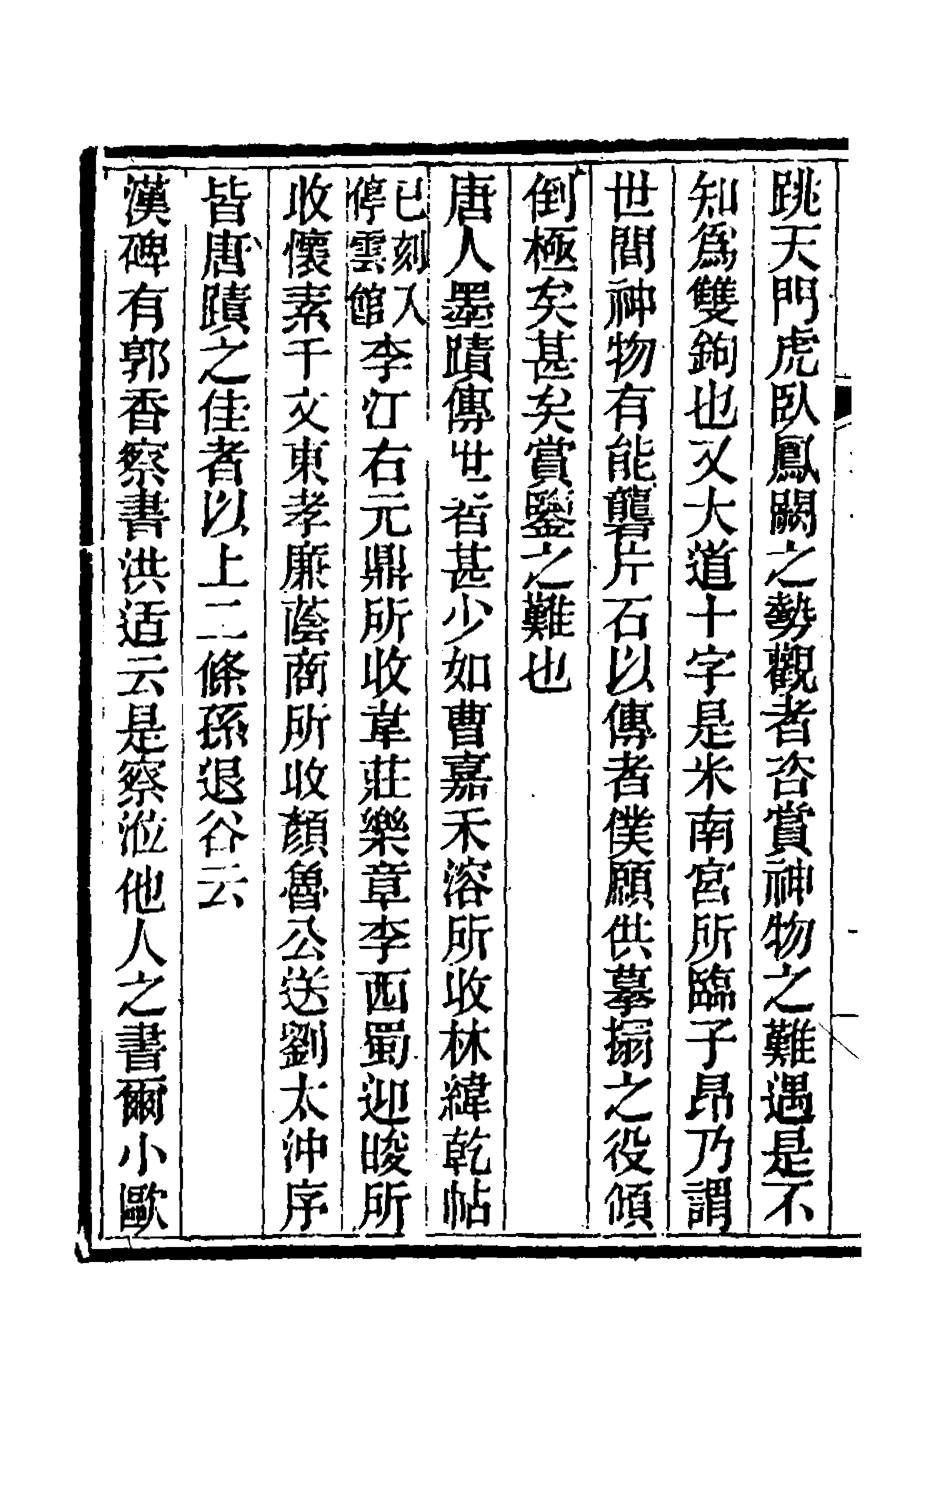 跳天門虎臥鳳闕之勢觀者咨賞神物之難遇是不
知爲雙鉤也又大道十字是米南宮所臨子昂乃謂
世間神物有能礱片石以傳者僕願供摹搨之役傾
倒極矣甚矣賞鑒之難也
唐人墨蹟傳世者甚少如曹嘉禾溶所收林緯乾帖
已刻入停雲館李江右元鼎所收韋莊樂章李西蜀迎晙所
收懷素千文東孝廉蔭商所收顏魯公送劉太沖序
皆唐蹟之佳者以上二條孫退谷云
漢碑有郭香察書洪适云是察涖他人之書爾小歐